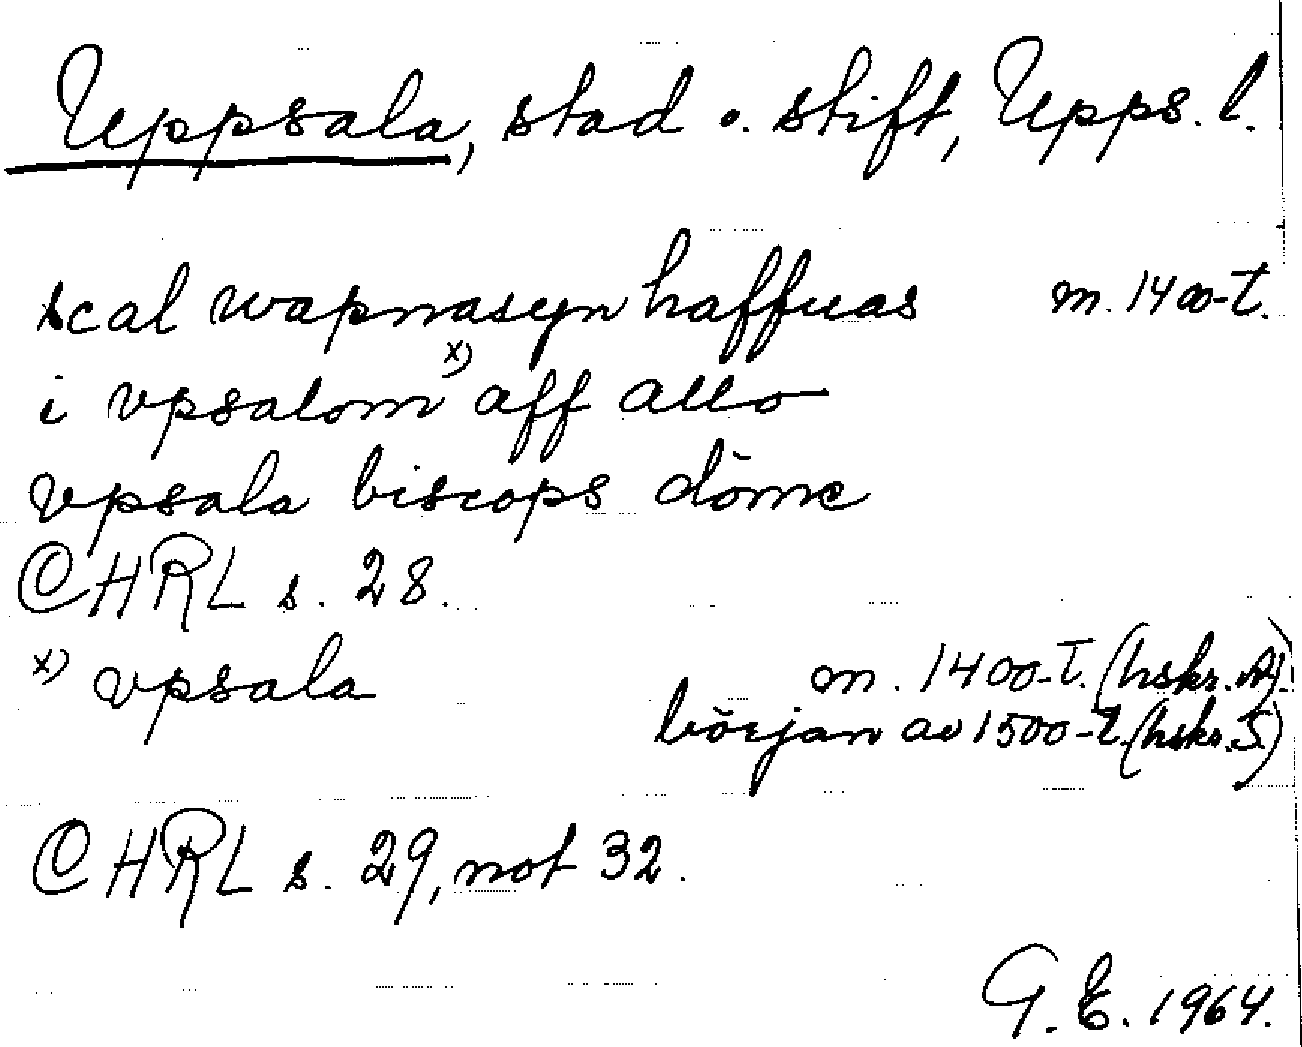 Uppsala, stad o. stift, Upps. l.
scal wapnasyn haffuas m. 1400-t.
i vpsalom x) aff allo
vpsala biscops döme
CHRL s. 28.
x) vpsala m. 1400-t. (hskr. A).
början av 1500-t. (hskr. S)
CHRL s. 29, not 32.
G. E. 1964.